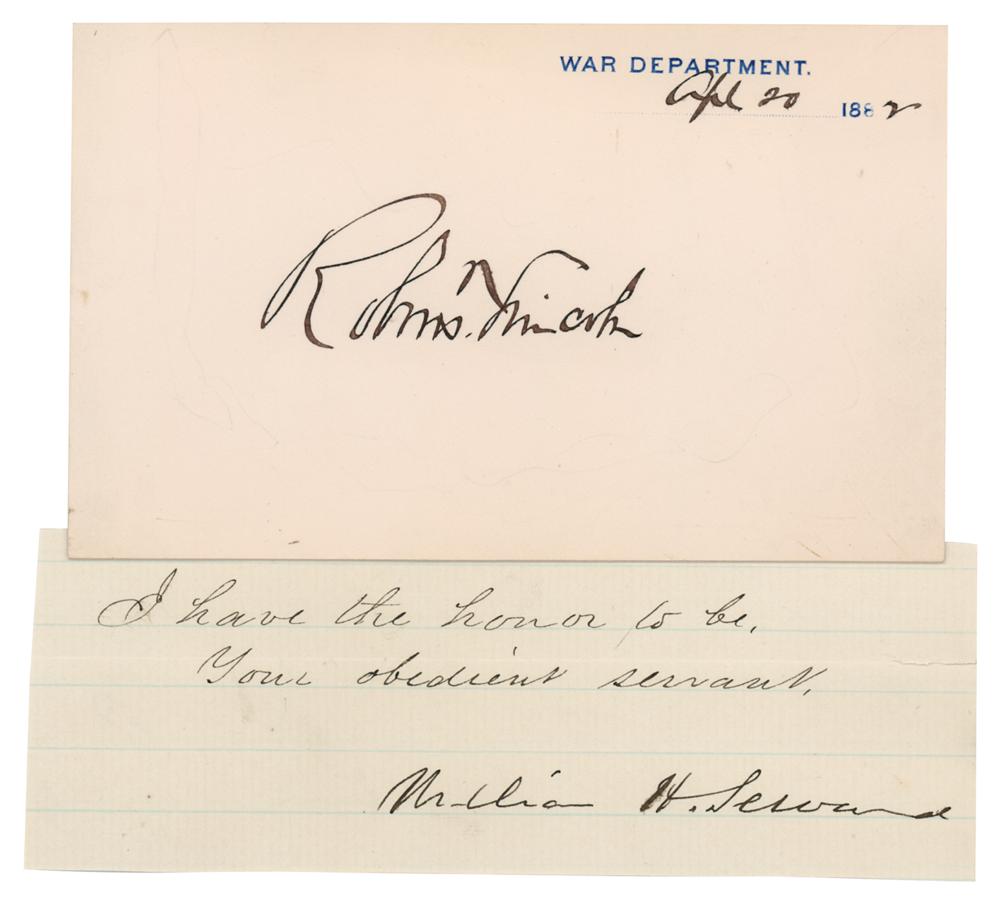 WAR DEPARTMENT.
Apl 20 1882
Robt T. Lincoln
I have the honor to be,
Your obedient servant,
William H. Seward